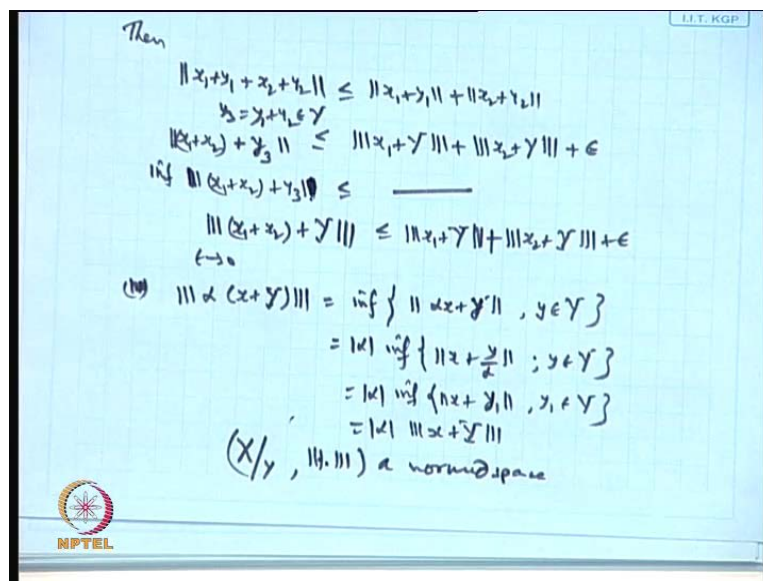 I.I.T. KGP
Then
||x₁+y₁ + x₂+y₂|| ≤ ||x₁+y₁|| + ||x₂+y₂||
y₃ = y₁+y₂ ∈ Y
||(x₁+x₂) + y₃|| ≤ |||x₁+Y||| + |||x₂+Y||| + ∈
inf ||(x₁+x₂) + y₃|| ≤ ———
|||(x₁+x₂) + Y||| ≤ |||x₁+Y||| + |||x₂+Y||| + ∈
∈→0
||| α (x+Y) ||| = inf { || αx+y || , y∈Y }
= |α| inf { ||x + y/α|| ; y∈Y }
= |α| inf { ||x + y₁|| , y₁∈Y }
= |α| |||x+Y|||
(X/Y , |||.|||) a normed space
NPTEL